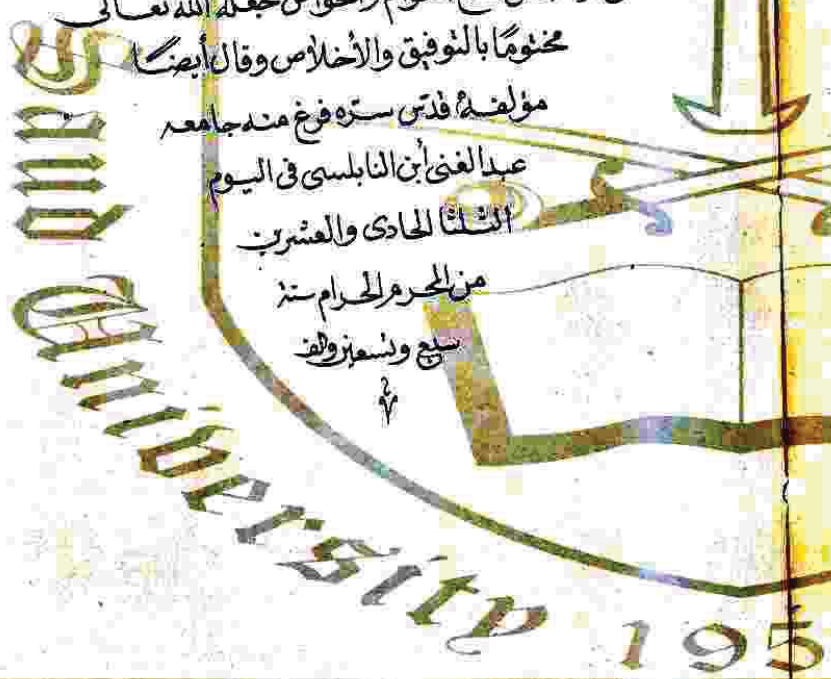 العوام والخواص جعله الله تعالى
مختومًا بالتوفيق والأخلاص وقال أيضًا
مؤلفه قدس سره فرغ منه جامعه
عبد الغنى أبن النابلسى فى اليوم
الثلثا الحادى والعشرين
من المحرم الحرام سنة
سبع وتسعين والف
Saud University 195